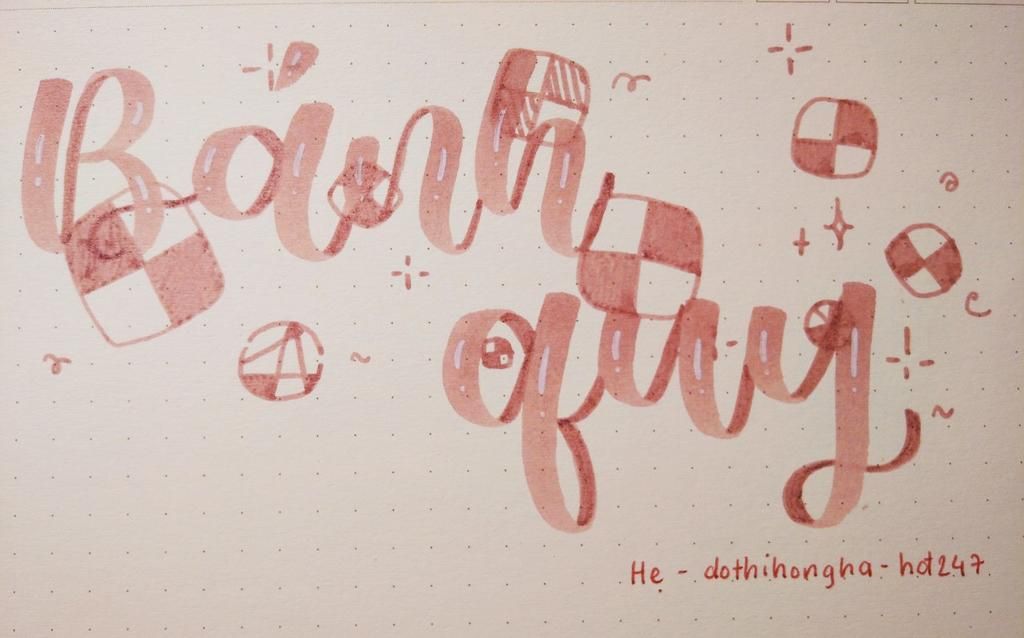 Bánh
quy
He - dothihongha - hot247